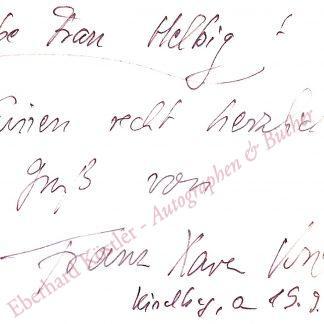 be Frau Helbig!
einen recht herzli
Gruß von
Franz Xaver
Kirchberg, a 19.9.
Eberhard Köstler - Autographen & Bücher